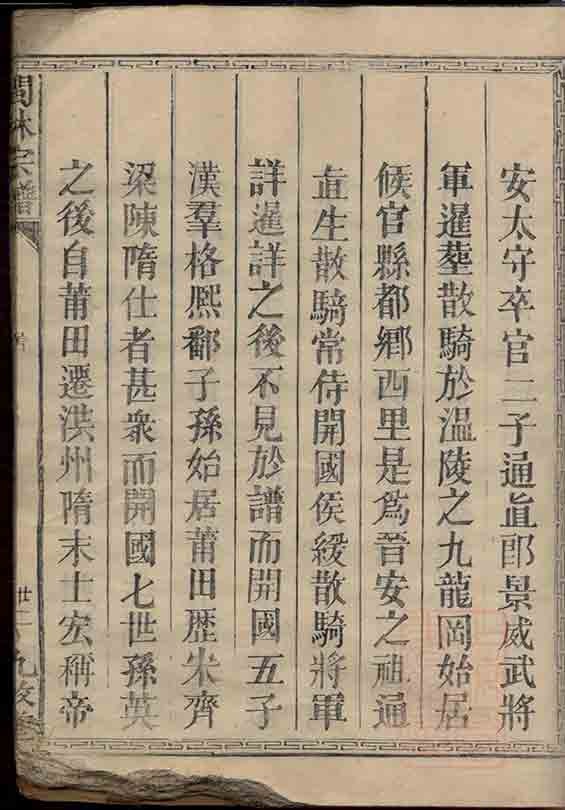 安太守卒官二子通直郎景威武將
軍暹塟散騎於温陵之九龍岡始居
候官縣都鄉西里是爲晉安之祖通
直生散騎常侍開國侯緩散騎將軍
詳暹詳之後不見於譜而開國五子
漢羣格熙鄱子孫始居莆田歴宋齊
梁陳隋仕者甚衆而開國七世孫英
之後自莆田遷洪州隋末士宏稱帝
閩林宗譜